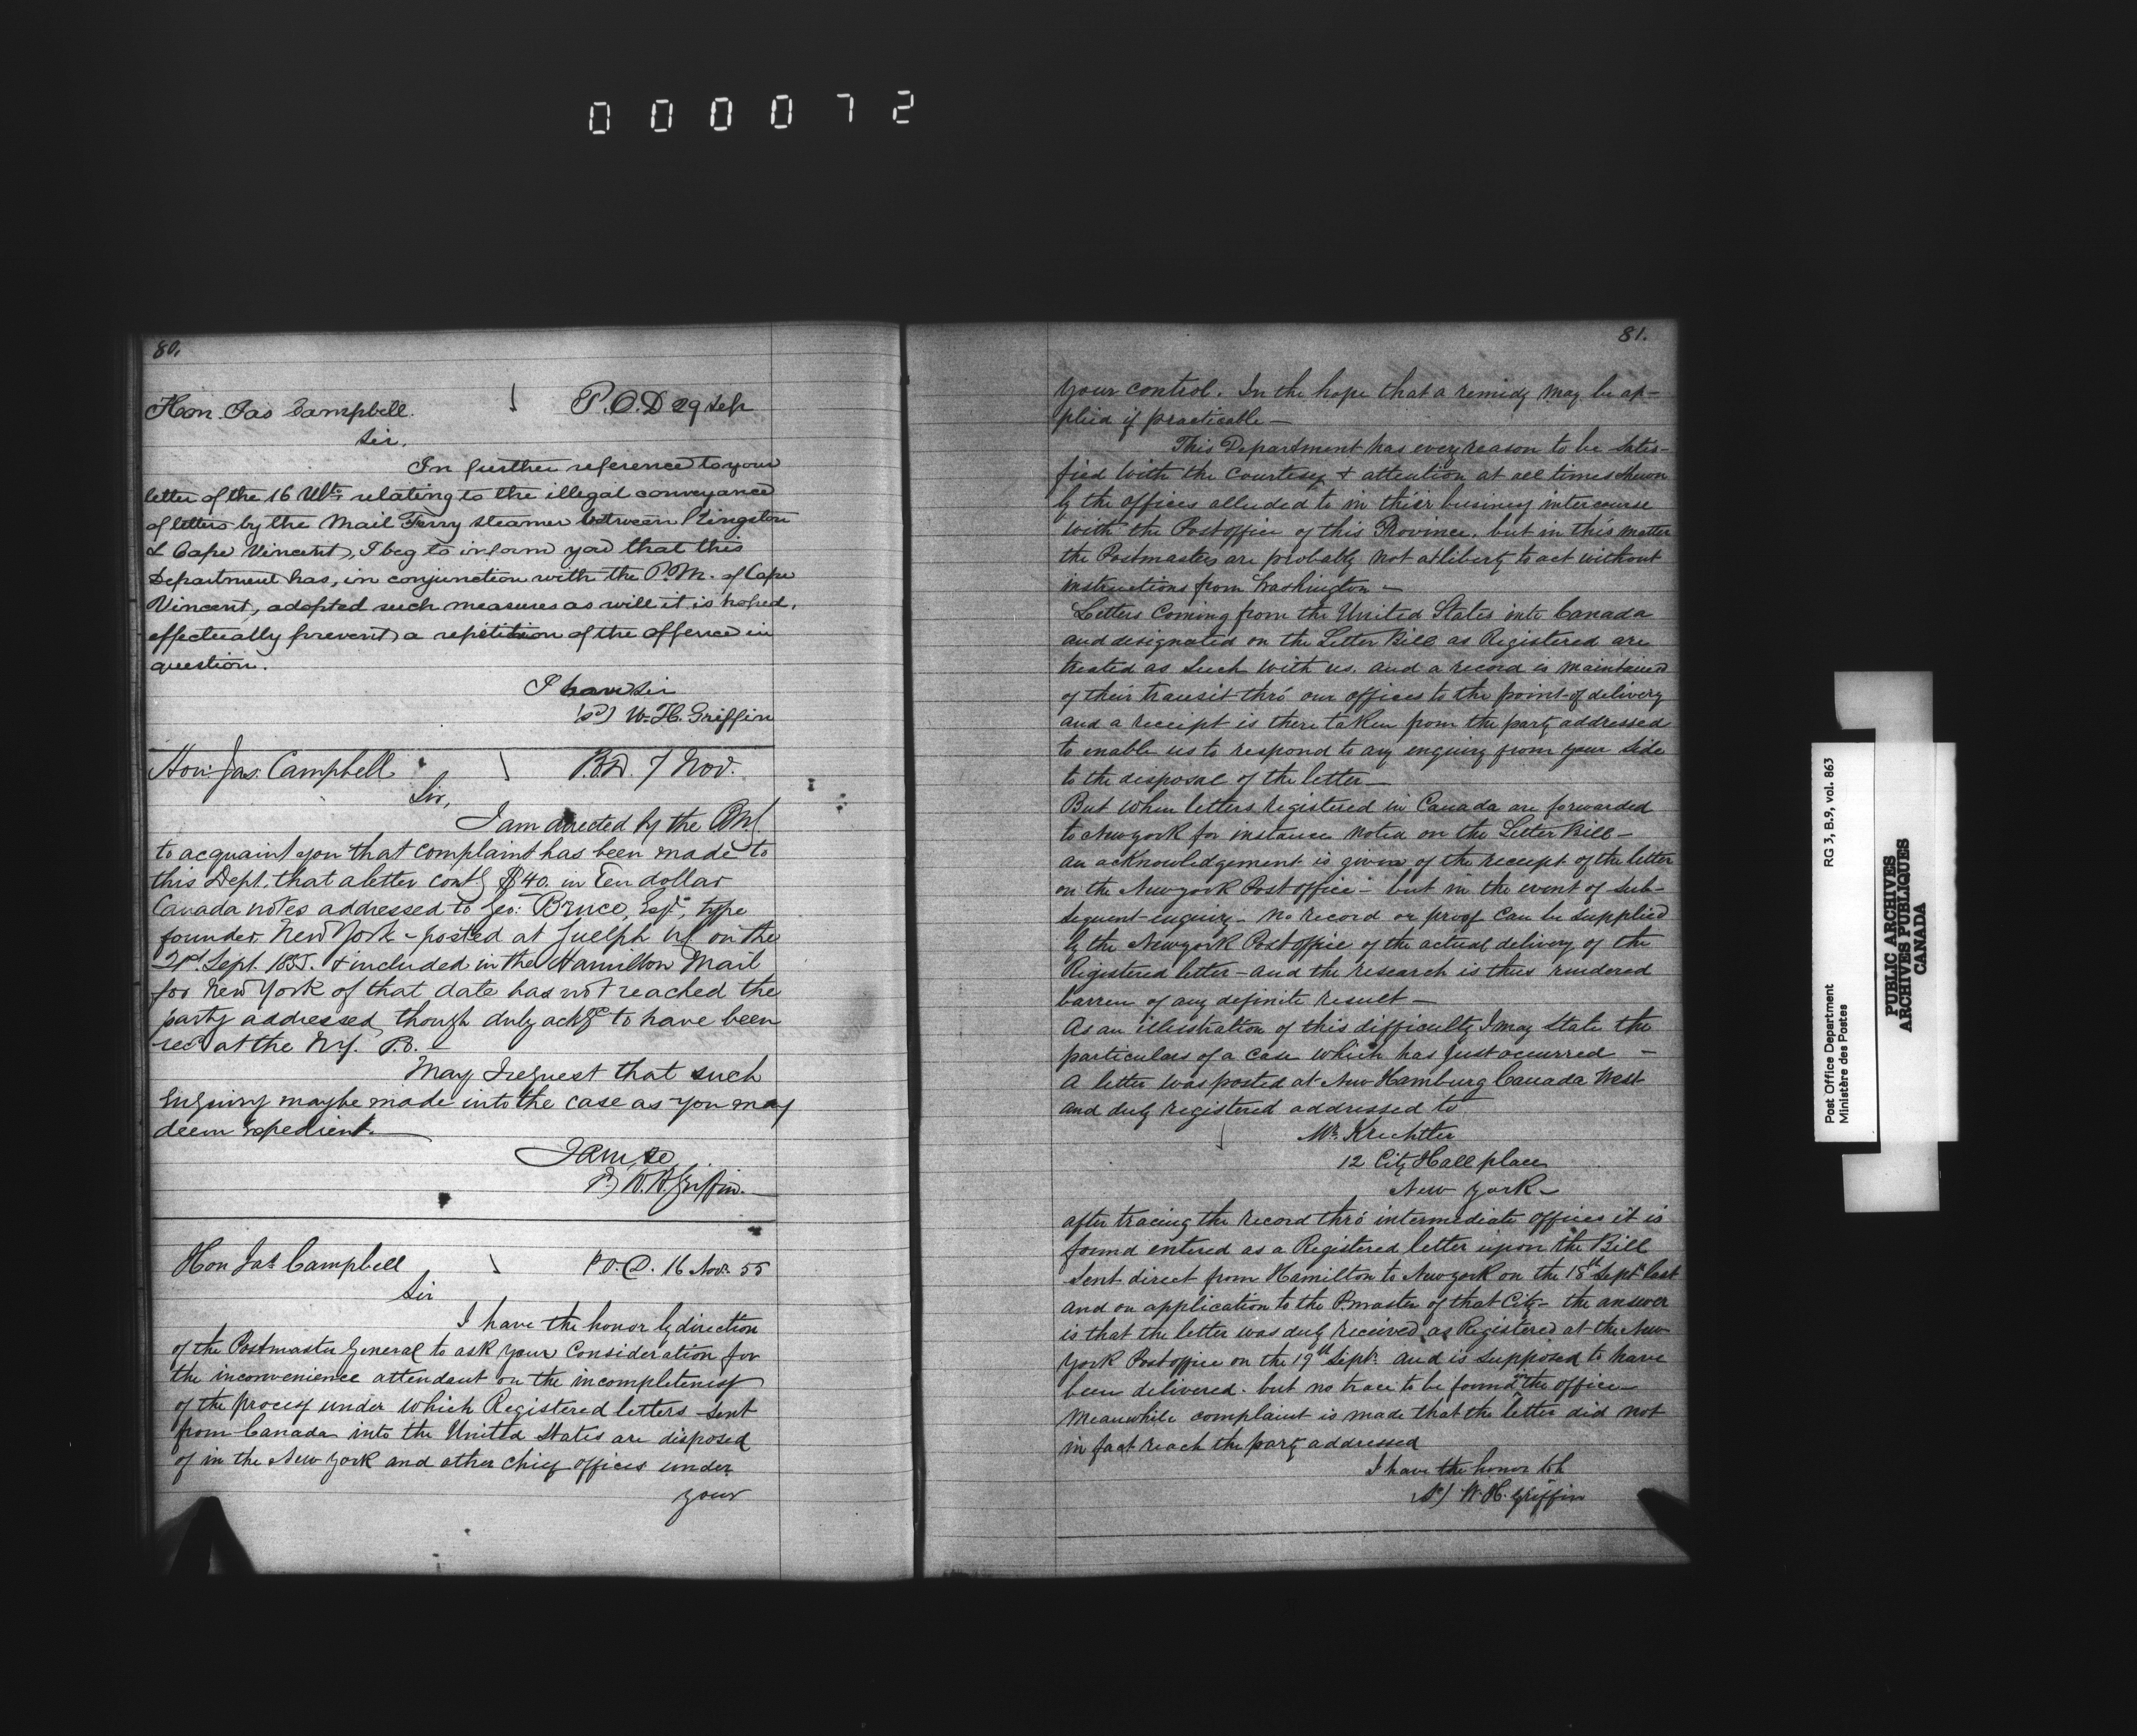 000072
80.
Hon. Jas Campbell. P.O.D 29 Sep
Sir.
In further reference to your
letter of the 16 Ulto relating to the illegal conveyance
of letters by the Mail Ferry steamer between Kingston
& Cape Vincent, I beg to inform you that this
Department has, in conjunction with the P.M. of Cape
Vincent, adopted such measures as will it is hoped,
effectually prevent a repetition of the offence in
question.
I have Sir
(sd) W. H. Griffin
Hon: Jas. Campbell P.O.D. 7 Nov.
Sir,
I am directed by the PMG
to acquaint you that complaint has been made to
this Dept. that a letter contg $40. in Ten dollar
Canada notes addressed to Geo: Bruce, Esqr, type
founder, New York - posted at Guelph on the
21st Sept. 1855. & included in the Hamilton Mail
for New York of that date has not reached the
party addressed, though duly ackgd to have been
recd at the N.Y. P.O. -
May I request that such
Enquiry may be made into the case as you may
deem Expedient. -
I am, &c
(sd) W. H. Griffin. -
Hon Jas Campbell P.O.D. 16 Novr. 55
Sir
I have the honor by direction
of the Postmaster General to ask your Consideration for
the inconvenience attendant on the incompleteness
of the process under which Registered letters sent
from Canada into the United States are disposed
of in the New York and other chief offices under
your
81.
your control. In the hope that a remidy may be ap-
plied if practicable -
This Department has every reason to be satis-
fied with the Courtesy & attention at all times shewn
by the offices alluded to in their business intercourse
with the Post office of this Province, but in this matter
the Postmasters are probably not at liberty to act without
instructions from Washington -
Letters Coming from the United States into Canada
and designated on the Letter Bill as Registered are
treated as such with us. and a record is maintained
of their transit thro' our offices to the point of delivery
and a receipt is there taken from the party addressed
to enable us to respond to any enquiry from your side
to the disposal of the letter -
But when letters registered in Canada are forwarded
to New york for instance noted on the Letter Bill -
an acknowledgement is given of the receipt of the letter
on the New york Post office - but in the event of sub-
sequent inquiry - no record or proof can be supplied
by the New york Post office of the actual delivery of the
Registered letter - and the research is thus rendered
barren of any definite result -
As an illustration of this difficulty I may state the
particulars of a case which has just occurred -
A letter was posted at New Hamburg Canada West
and duly registered addressed to
Mr. Krechtler
12 City Hall place
New york -
after tracing the record thro' intermediate offices it is
found entered as a Registered letter upon the Bill
sent direct from Hamilton to New york on the 18th Septr last
and on application to the P.master of that City - the answer
is that the letter was duly received as Registered at the New
york Post office on the 19th Septr. and is supposed to have
been delivered. but no trace to be found in the office -
Meanwhile complaint is made that the letter did not
in fact reach the party addressed
I have the honor
(sd) W. H. Griffin
Post Office Department RG 3, B.9, vol. 863
Ministère des Postes
PUBLIC ARCHIVES
ARCHIVES PUBLIQUES
CANADA